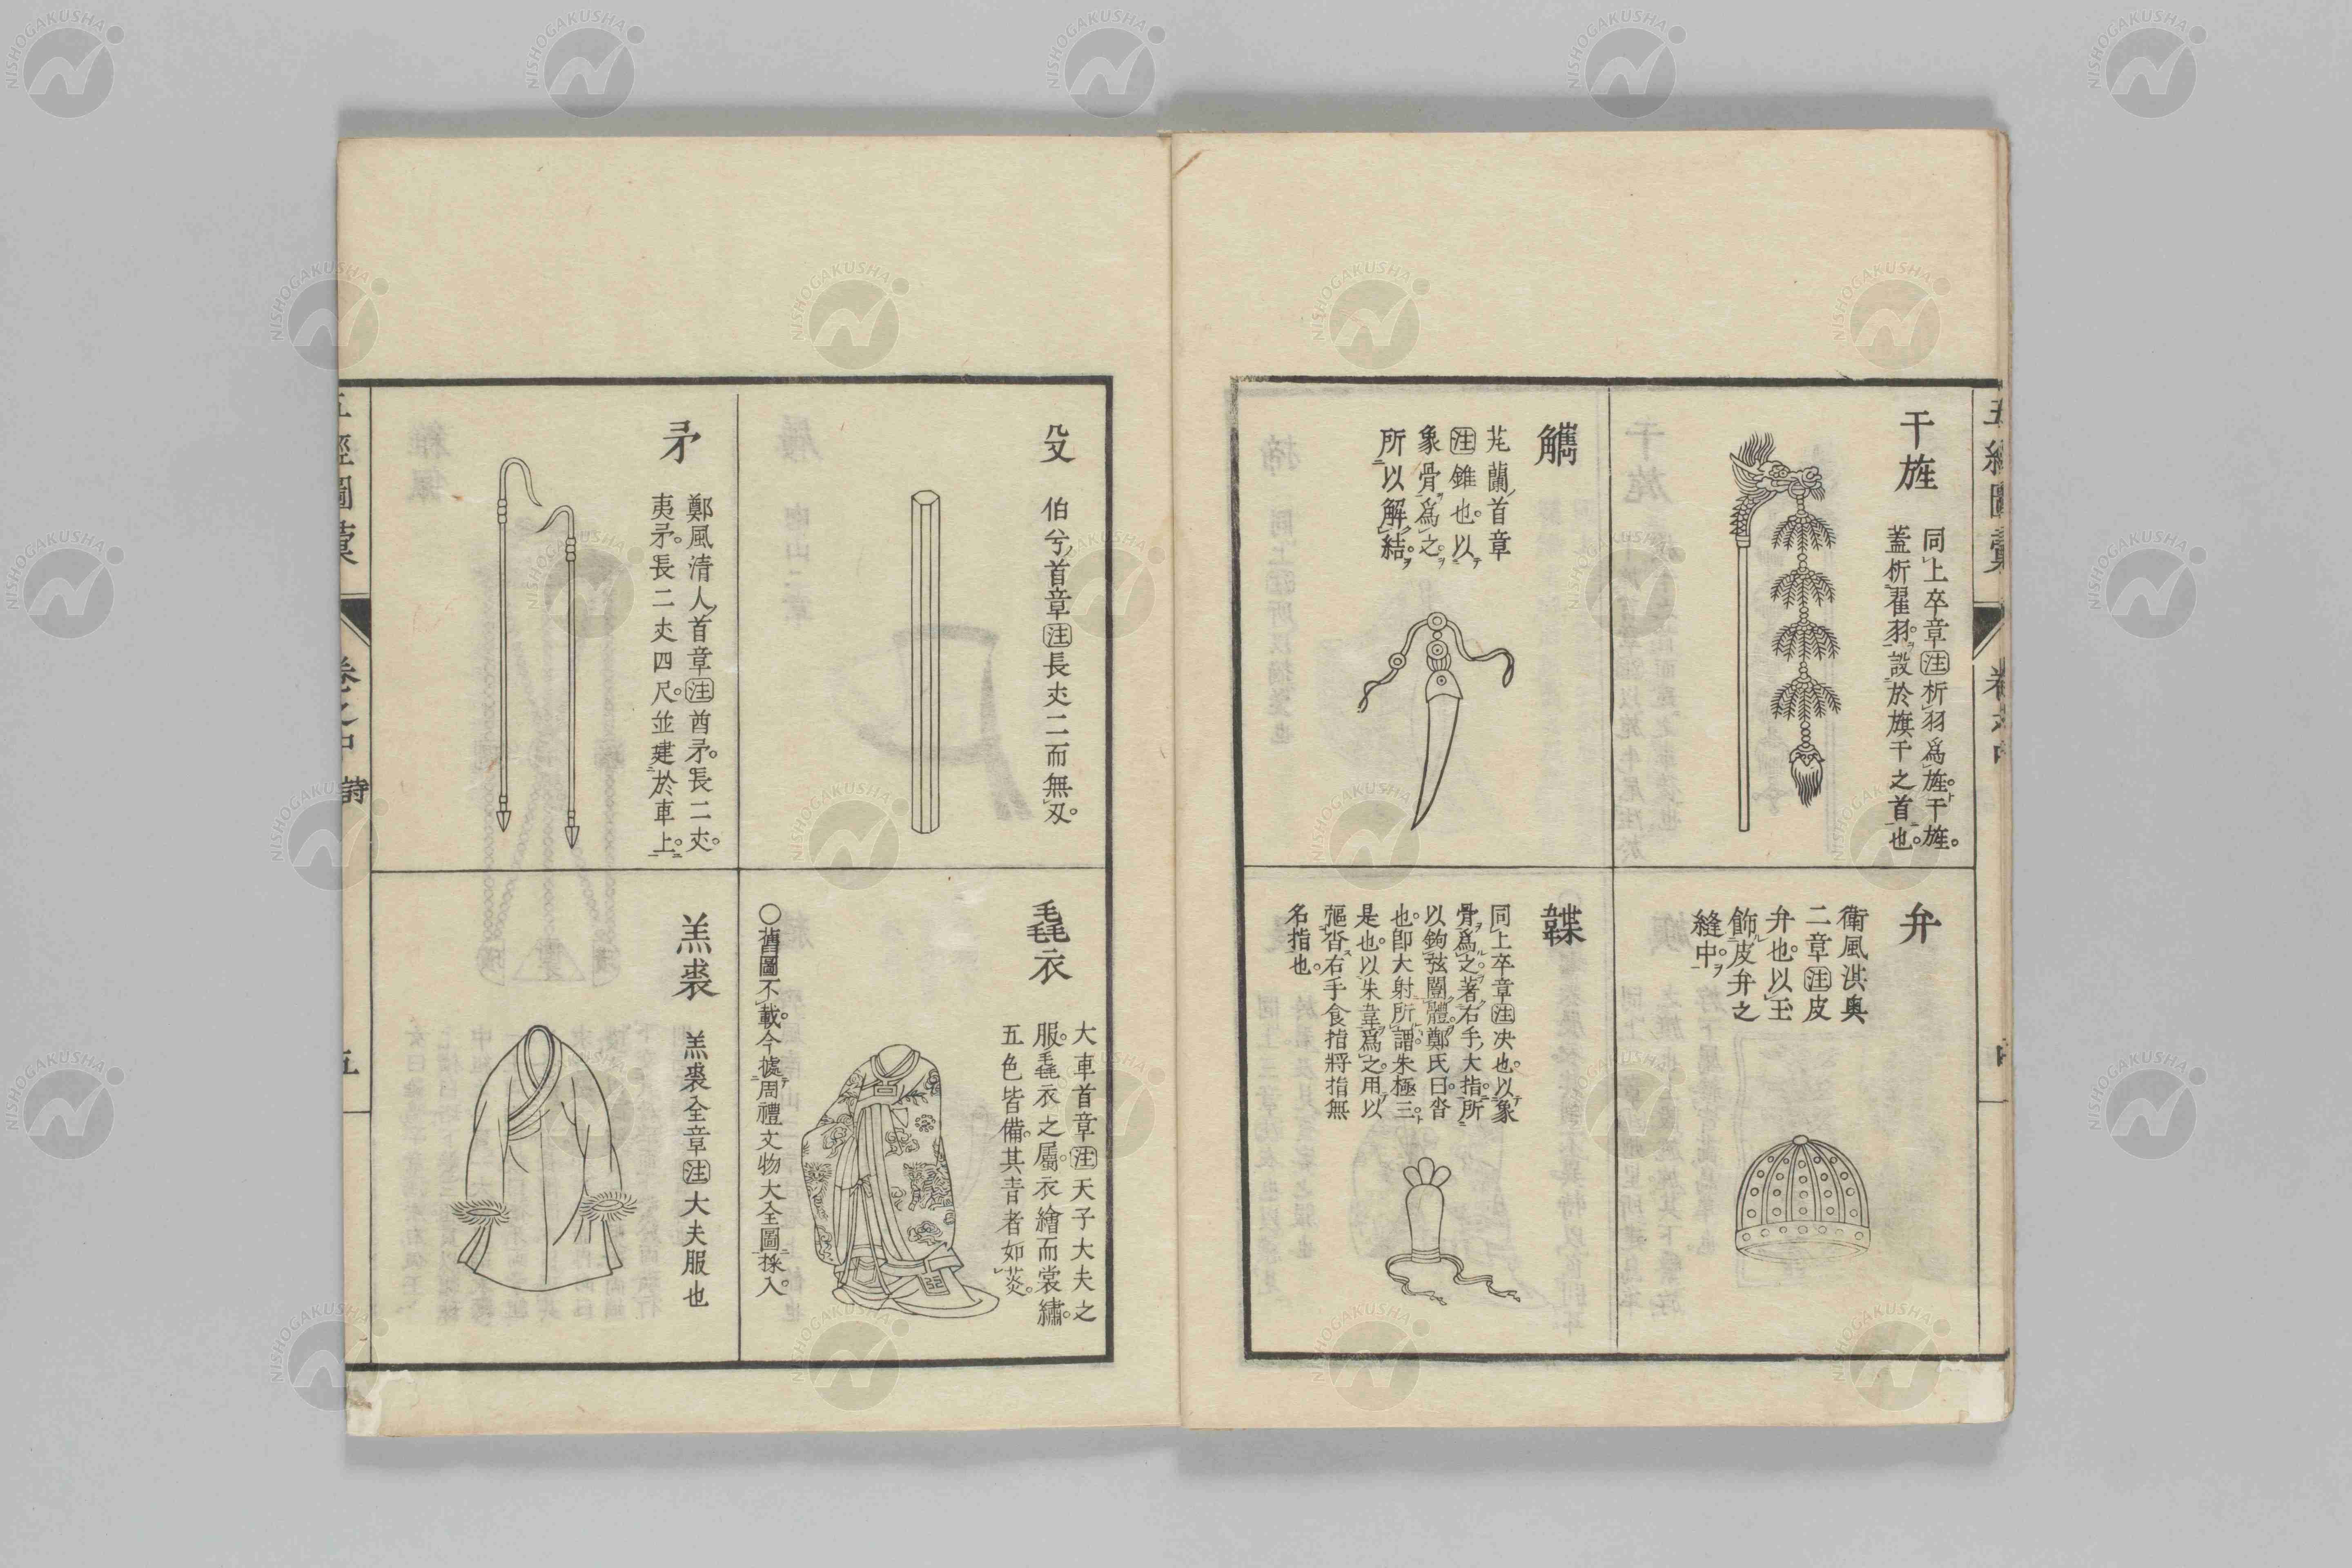 干旌
同上卒章注析羽爲旌干旌
蓋析翟羽設於旗干之首也
弁
衛風淇奥
二章注皮
弁也以玉
飾皮弁之
縫中
觿
芄蘭首章
注錐也以
象骨爲之
所以解結
韘
同上卒章注决也以象
骨爲之著右手大指所
以鉤弦闓體鄭氏曰沓
也卽大射所謂朱極三
是也以朱韋爲之用以
彄沓右手食指將指無
名指也
殳
伯兮首章注長丈二而無刃
毳衣
大車首章注天子大夫之
服毳衣之屬衣繪而裳繡
五色皆備其青者如菼
○舊圖不載今據周禮文物大全圖採入
矛
鄭風清人首章注酋矛長二丈
夷矛長二丈四尺並建於車上
羔裘
羔裘全章注大夫服也
五經圖彙
卷之中
詩
五
NISHOGAKUSHA